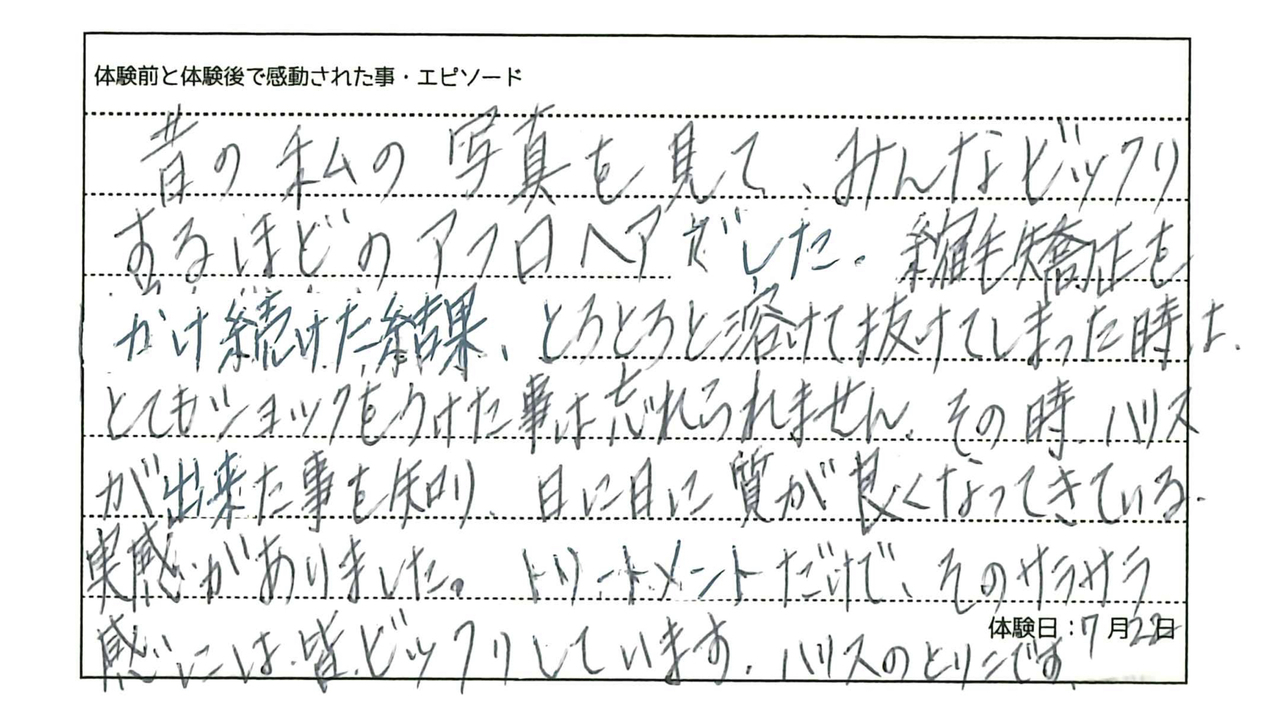 体験前と体験後で感動された事・エピソード
昔の私の写真を見て、みんなビックリ
するほどのアフロヘアでした。縮毛矯正を
かけ続けた結果、とろとろと溶けて抜けてしまった時は、
とてもショックをうけた事は忘れられません。その時、ハリス
が出来た事を知り、日に日に質が良くなってきている
実感がありました。トリートメントだけで、そのサラサラ
感には、皆、ビックリしています。ハリスのとりこです。
体験日：7月22日